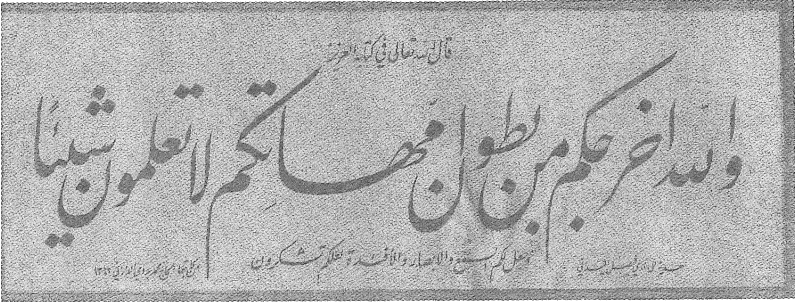 قال الله تعالى في كتابه العزيز
والله اخرجكم من بطون امهاتكم لا تعلمون شيئا
وجعل لكم السمع والابصار والافئدة لعلكم تشكرون